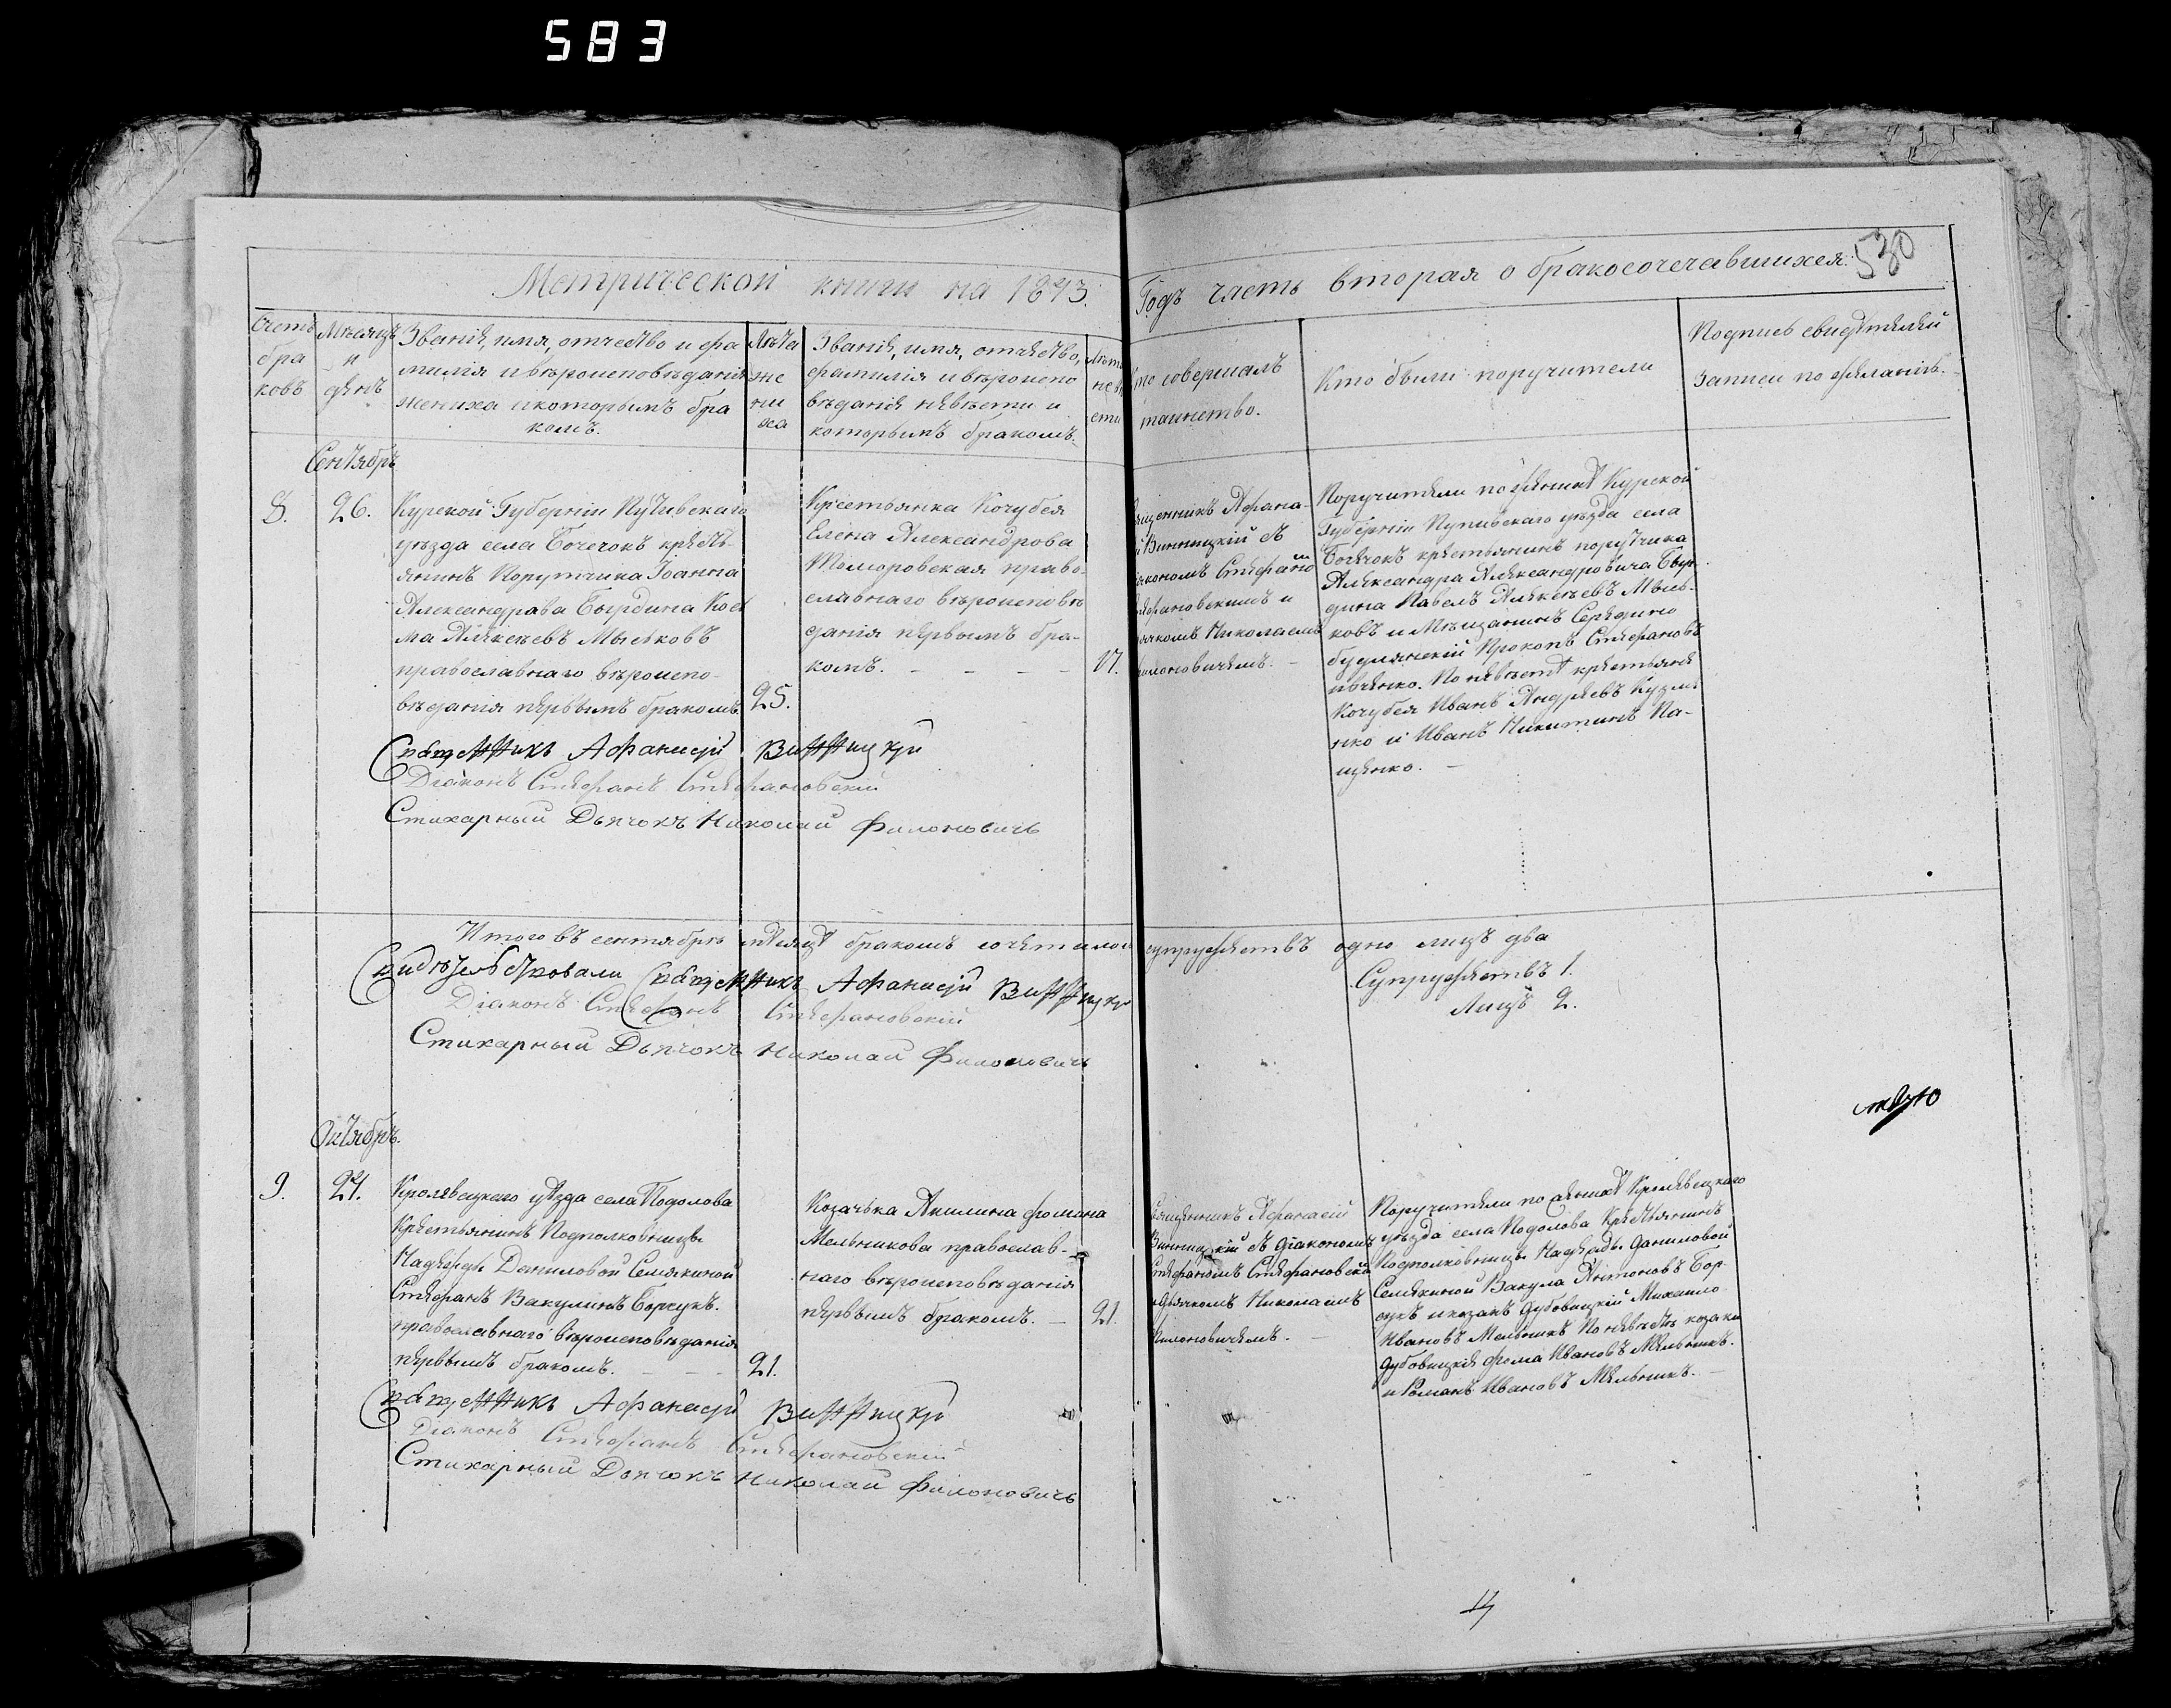 583
Метрической книги на 1843.
Годъ часть вторая о бракосочетавшихся.
530
Счетъ
бра
ковъ
Мѣсяцъ
и
день
Званіе, имя, отчество и фа
милія и вѣроисповѣданія
жениха и которымъ бра
комъ.
Лѣта
же
ни
ха
Званіе, имя, отчество,
фамилія и вѣроиспо
вѣданія невѣсты и
которымъ бракомъ.
совершалъ
таинство.
Кто были поручители
Подпись свидѣтелей
записи по желанію.
Сентябрь
8.
26.
Курской Губерніи Путивскаго
уѣзда села Бочечокъ кресть-
янинъ Порутчика Іоанна
Александрова Бырдина Кос
ма Алексеевъ Мыськовъ
православнаго вѣроиспо-
вѣданія первымъ бракомъ.
25.
Крестьянка Кочубея
Елена Александрова
Томоровская право-
славнаго вѣроисповѣ
данія первымъ бра-
комъ.
17.
Афана-
Винницкій съ
Стефаномъ
Стефановскимъ и
Николаемъ
Филоновичемъ.
Поручители по женихѣ Курской
Губерніи Путивскаго уѣзда села
Бочечокъ крестьянинъ порутчика
Александра Александровича Быр-
дина Павелъ Алексеевъ Мысь-
ковъ и Мѣщанинъ Середино
будянскій Прокопъ Стефановъ
Ивченко. По невѣстѣ крестьяне
Кочубея Иванъ Андреевъ Кузме
нко и Иванъ Никитинъ Па-
щенко.
Священникъ Афанасій Винницкій
Діаконъ Стефанъ Стефановскій
Стихарный Дьячокъ Николай Филоновичъ
Итого въ сентябрѣ мѣсяцѣ бракомъ сочеталось супружествъ одно лицъ два
Супружествъ 1.
Лицъ 2.
Свидѣтельствовали Священникъ Афанасій Винницкій
Діаконъ Стефанъ Стефановскій
Стихарный Дьячокъ Николай Филоновичъ
Октябрь.
9.
24.
Кролевецкаго уѣзда села Подолова
Крестьянинъ Подполковницы
Надежды Даниловой Семякиной
Стефанъ Вакулинъ Борсукъ.
православнаго вѣроисповѣданія
первымъ бракомъ.
21.
Козачька Акилина Фомина
Мельникова православ-
наго вѣроисповѣданія
первымъ бракомъ.
21.
Священникъ Афанасій
Винницкій съ діакономъ
Стефаномъ Стефановски
дьячкомъ Николаемъ
Филоновичемъ.
Поручители по женихѣ Кролевецкаго
уѣзда села Подолова Крестьянинъ
Подполковницы Надежды Даниловой
Семякиной Вакула Антоновъ Бор-
сукъ и козакъ дубовицкій Михаило
Ивановъ Мельникъ По невѣстѣ козаки
дубовицкіе Фома Ивановъ Мельникъ.
и Романъ Ивановъ Мельникъ.
Священникъ Афанасій Винницкій
Діаконъ Стефанъ Стефановскій
Стихарный Дьячокъ Николай Филоновичъ